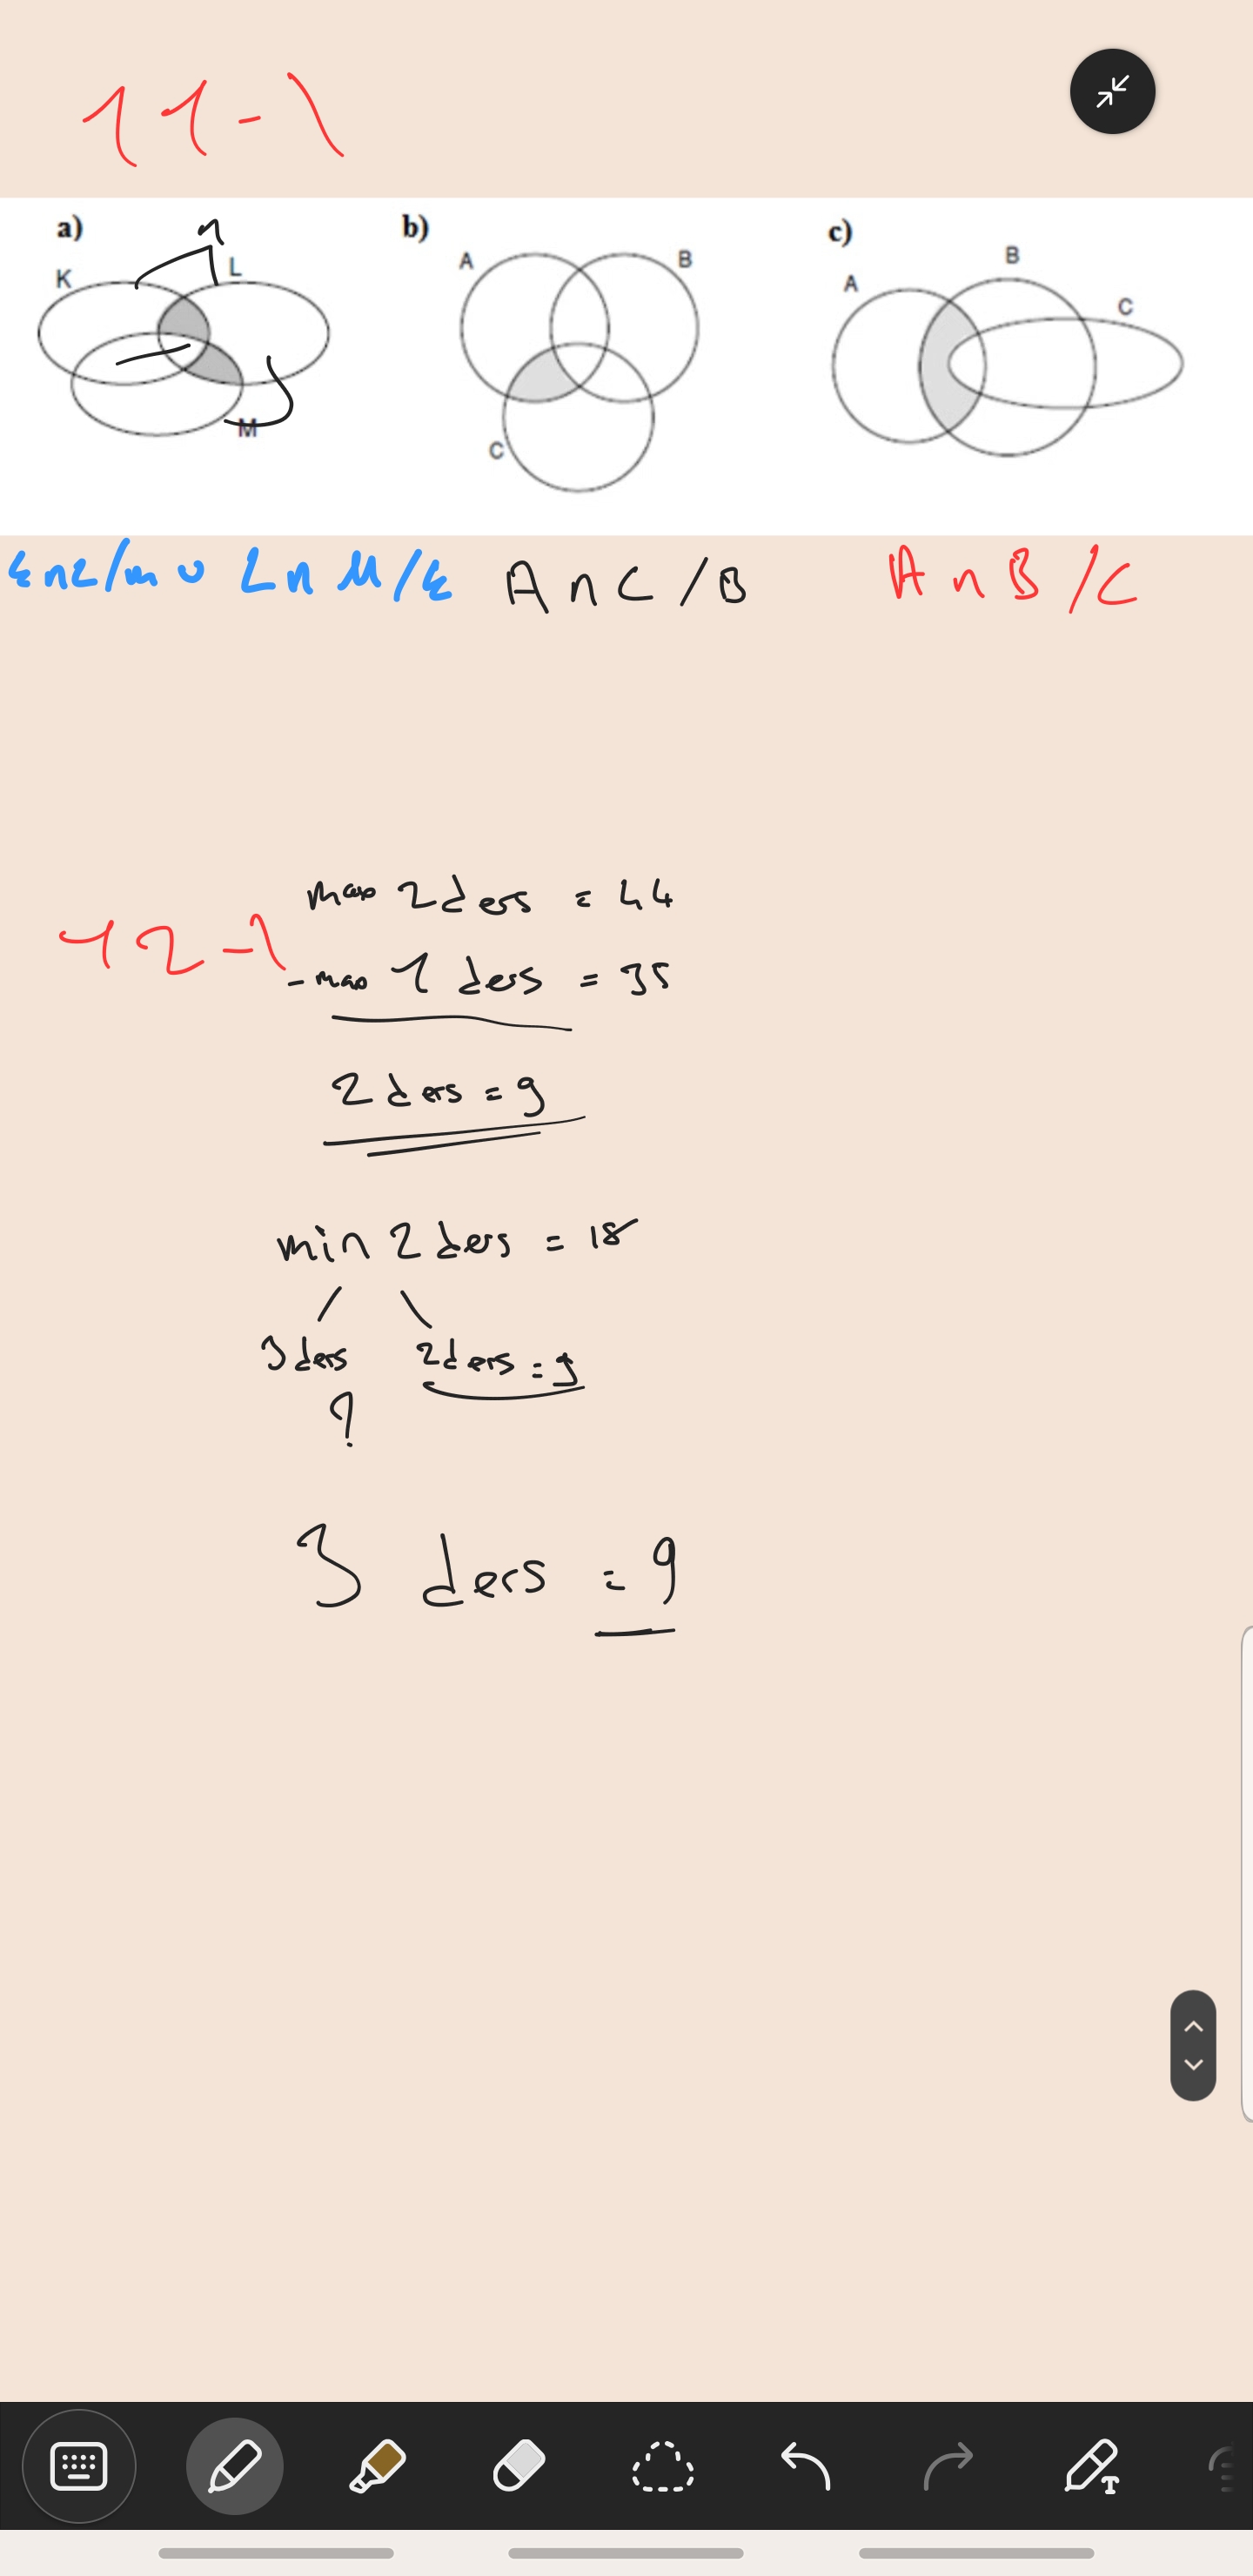 11-)
a) b) c)
K L M
A B C
A B C
K∩L/m ∪ L∩M/K A∩C/B A∩B/C
12-)
max 2 ders = 44
- max 1 ders = 35
2 ders = 9
min 2 ders = 18
3 ders 2 ders = 9
?
3 ders = 9
T